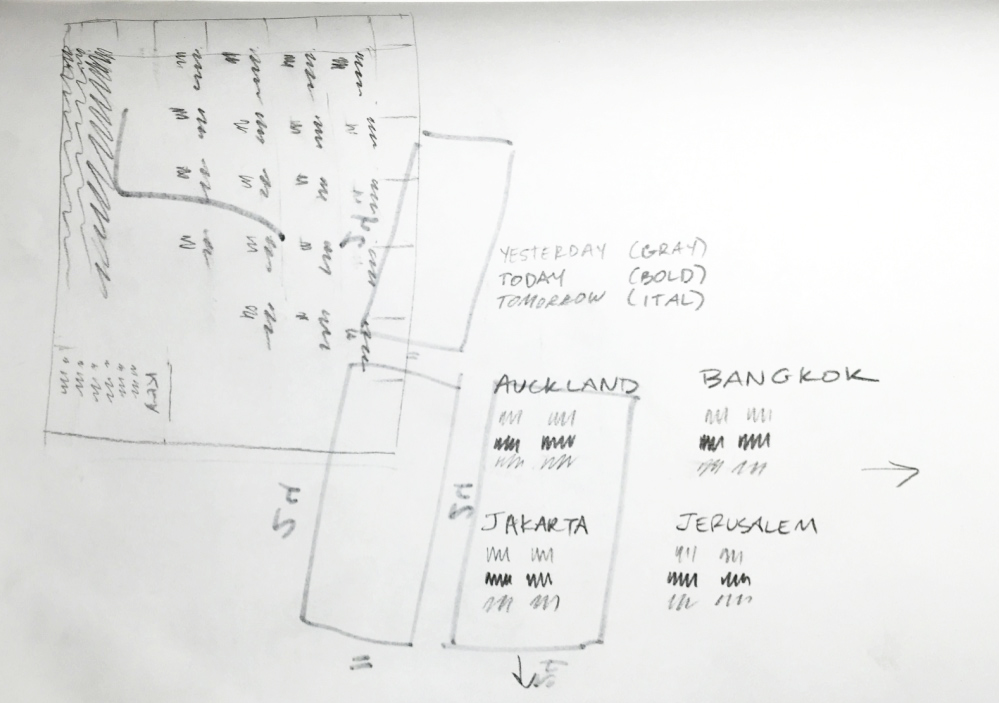 YESTERDAY (GRAY)
TODAY (BOLD)
TOMORROW (ITAL)
AUCKLAND
BANGKOK
JAKARTA
JERUSALEM
KEY